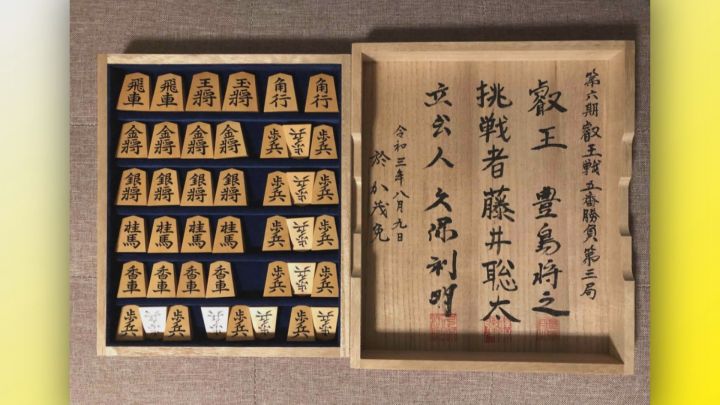 飛車 飛車 王将 玉将 角行 角行
金将 金将 金将 金将 歩兵 歩兵 歩兵
銀将 銀将 銀将 銀将 歩兵 歩兵 歩兵
桂馬 桂馬 桂馬 桂馬 歩兵 歩兵 歩兵
香車 香車 香車 香車 歩兵 歩兵 歩兵
歩兵 歩兵 歩兵 歩兵 歩兵 歩兵 歩兵 歩兵
第六期叡王戦五番勝負第三局
叡王 豊島将之
挑戦者 藤井聡太
立会人 久保利明
令和三年八月九日
於 か茂免